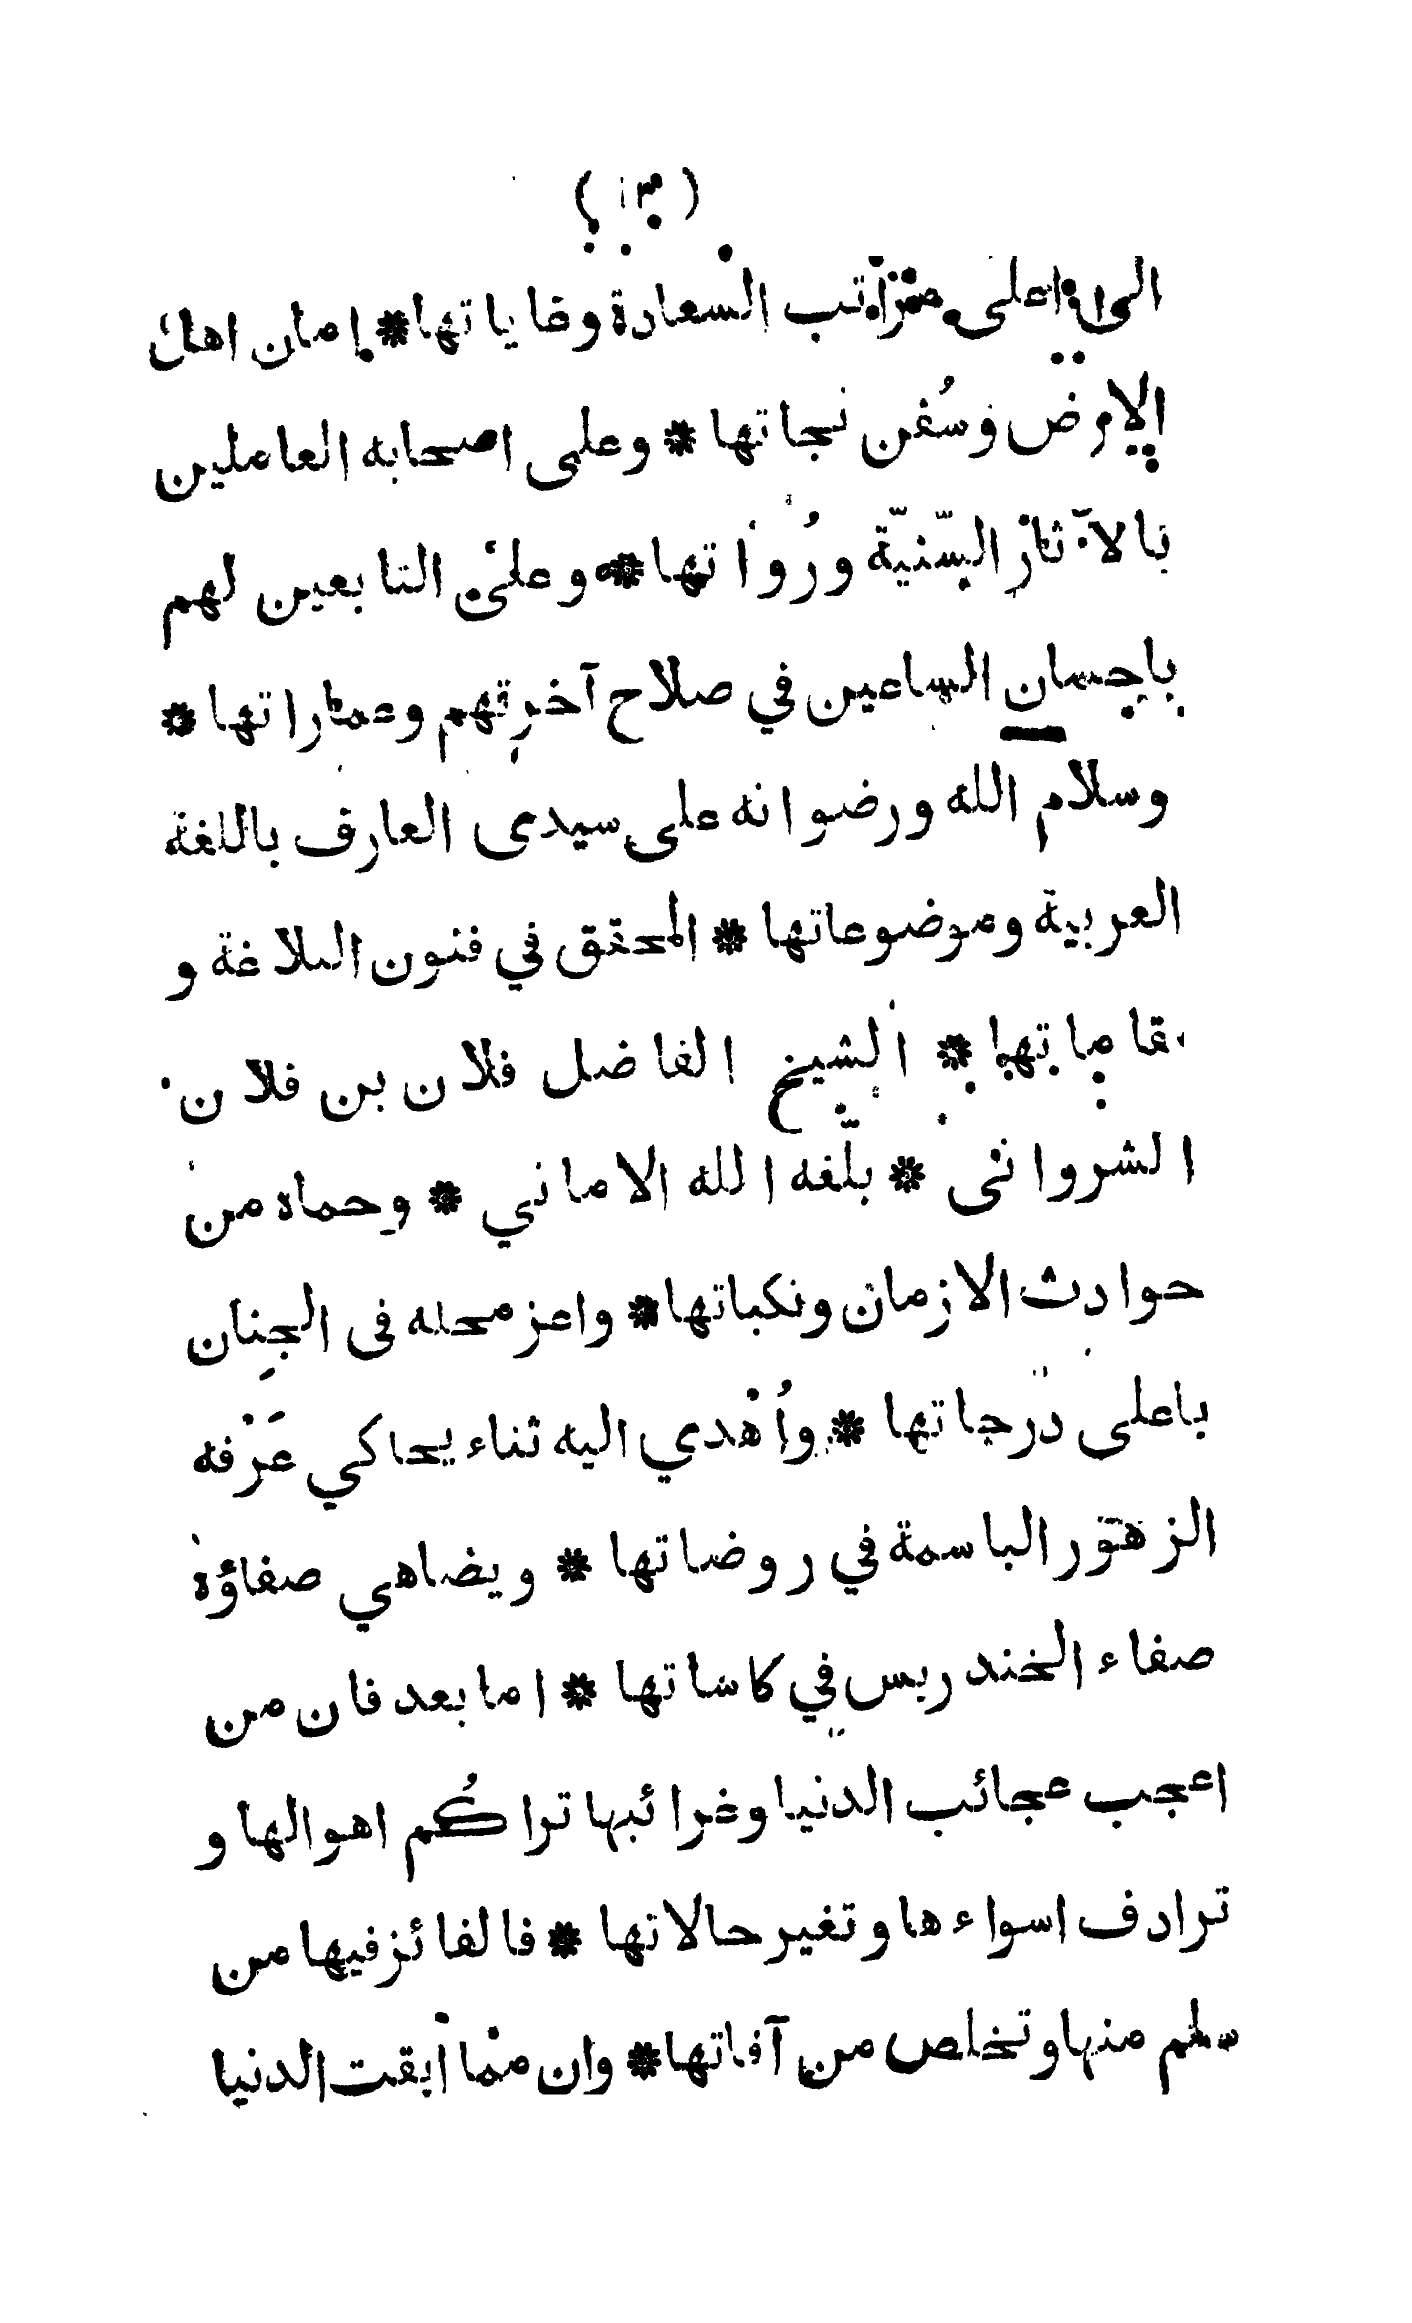 (١٣)
الى اعلى مراتب السعادة وغاياتها * امان اهل
الارض وسُفن نجاتها * وعلى اصحابه العاملين
بالآثار السّنيّة ورُواتها * وعلى التابعين لهم
باحسان الساعين في صلاح آخرتهم وعماراتها *
وسلام الله ورضوانه على سيدى العارف باللغة
العربية وموضوعاتها * المحقق في فنون البلاغة و
مقاماتها * الشيخ الفاضل فلان بن فلان
الشروانى * بلّغه الله الاماني * وحماه من
حوادث الازمان ونكباتها * واعز محله فى الجِنان
باعلى درجاتها * واُهدي اليه ثناء يحاكي عَرْفه
الزهور الباسمة في روضاتها * ويضاهي صفاؤه
صفاء الخندريس في كاساتها * اما بعد فان من
اعجب عجائب الدنيا وغرائبها تراكُم اهوالها و
ترادف اسواءها وتغير حالاتها * فالفائز فيها من
سلم منها وتخلص من آفاتها * وان مما ابقت الدنيا